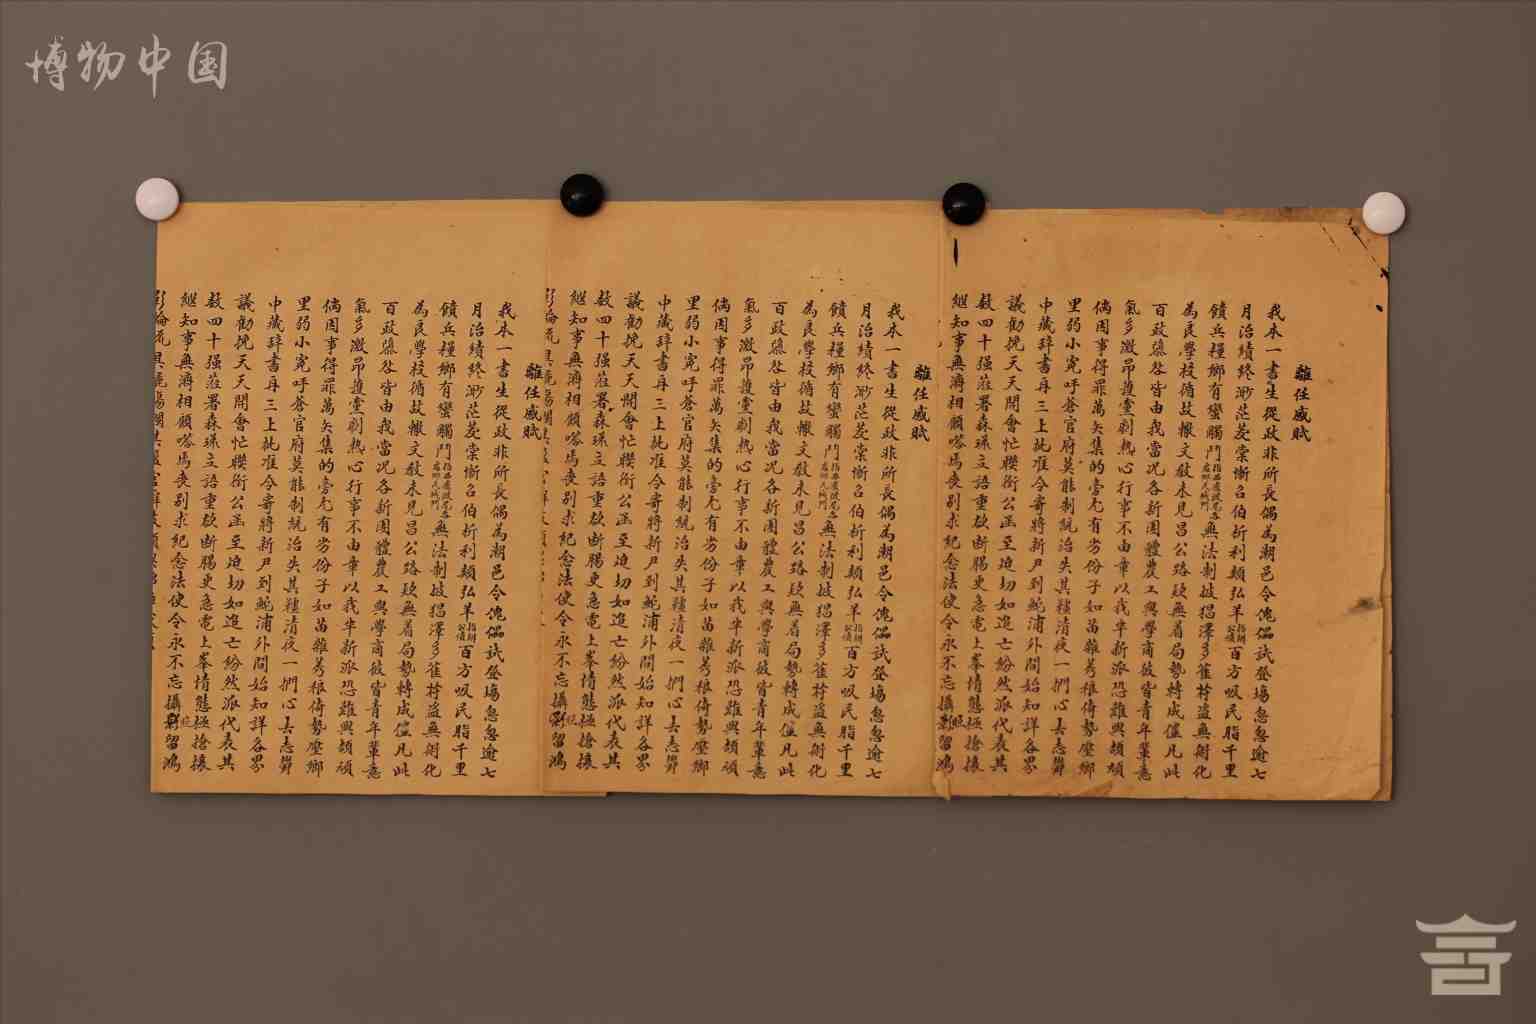 博物中国
離任感賦
我本一書生從政非所長偶為潮邑令傀儡試登場忽忽逾七
月治績終渺茫茇棠慚召伯析利賴弘羊指辦公債百方吸民脂千里
饋兵糧鄉有蠻觸鬥無法制披猖澤多萑苻盜無術化
為良學校循故轍文教未見昌公路欵無着局勢轉成僵凡此
百政隳咎皆由我當况各新團體農工與學商彼皆青年輩意
氣多激昂護黨剩熱心行事不由章以我半新派恐難與頡頏
倘因事得罪萬矢集的旁尤有劣份子如苗雜莠稂倚勢壓鄉
里弱小冤吁蒼官府莫能制統治失其韁清夜一捫心去志
中藏辭書再三上批准令寄將新尹到鮀浦外間始知詳各界
議勸挽天天開會忙聯銜公函至迫切如追亡紛然派代表其
数四十强蒞署森球立語重欲斷腸更急電上峯情態極搶攘
継知事無濟相顧嗒焉喪別求紀念法使令永不忘攝影留鴻
離任感賦
我本一書生從政非所長偶為潮邑令傀儡試登場忽忽逾七
月治績終渺茫茇棠慚召伯析利賴弘羊指辦公債百方吸民脂千里
饋兵糧鄉有蠻觸鬥無法制披猖澤多萑苻盜無術化
為良學校循故轍文教未見昌公路欵無着局勢轉成僵凡此
百政隳咎皆由我當况各新團體農工與學商彼皆青年輩意
氣多激昂護黨剩熱心行事不由章以我半新派恐難與頡頏
倘因事得罪萬矢集的旁尤有劣份子如苗雜莠稂倚勢壓鄉
里弱小冤吁蒼官府莫能制統治失其韁清夜一捫心去志
中藏辭書再三上批准令寄將新尹到鮀浦外間始知詳各界
議勸挽天天開會忙聯銜公函至迫切如追亡紛然派代表其
数四十强蒞署森球立語重欲斷腸更急電上峯情態極搶攘
継知事無濟相顧嗒焉喪別求紀念法使令永不忘攝影留鴻
離任感賦
我本一書生從政非所長偶為潮邑令傀儡試登場忽忽逾七
月治績終渺茫茇棠慚召伯析利賴弘羊指辦公債百方吸民脂千里
饋兵糧鄉有蠻觸鬥無法制披猖澤多萑苻盜無術化
為良學校循故轍文教未見昌公路欵無着局勢轉成僵凡此
百政隳咎皆由我當况各新團體農工與學商彼皆青年輩意
氣多激昂護黨剩熱心行事不由章以我半新派恐難與頡頏
倘因事得罪萬矢集的旁尤有劣份子如苗雜莠稂倚勢壓鄉
里弱小冤吁蒼官府莫能制統治失其韁清夜一捫心去志
中藏辭書再三上批准令寄將新尹到鮀浦外間始知詳各界
議勸挽天天開會忙聯銜公函至迫切如追亡紛然派代表其
数四十强蒞署森球立語重欲斷腸更急電上峯情態極搶攘
継知事無濟相顧嗒焉喪別求紀念法使令永不忘攝影留鴻